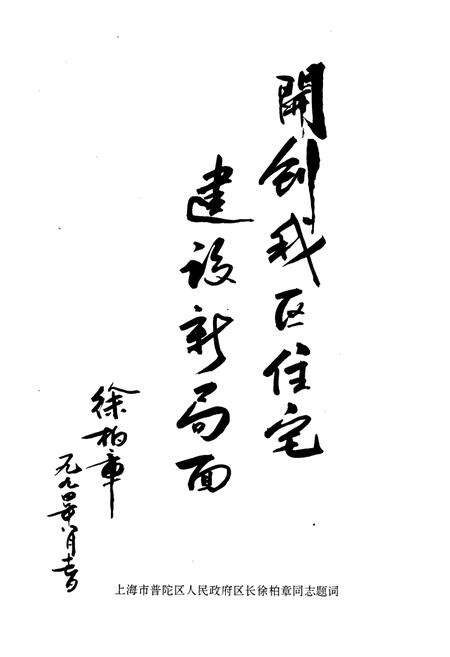 開创我区住宅
建设新局面
徐柏章
一九九四年八月
上海市普陀区人民政府区长徐柏章同志题词